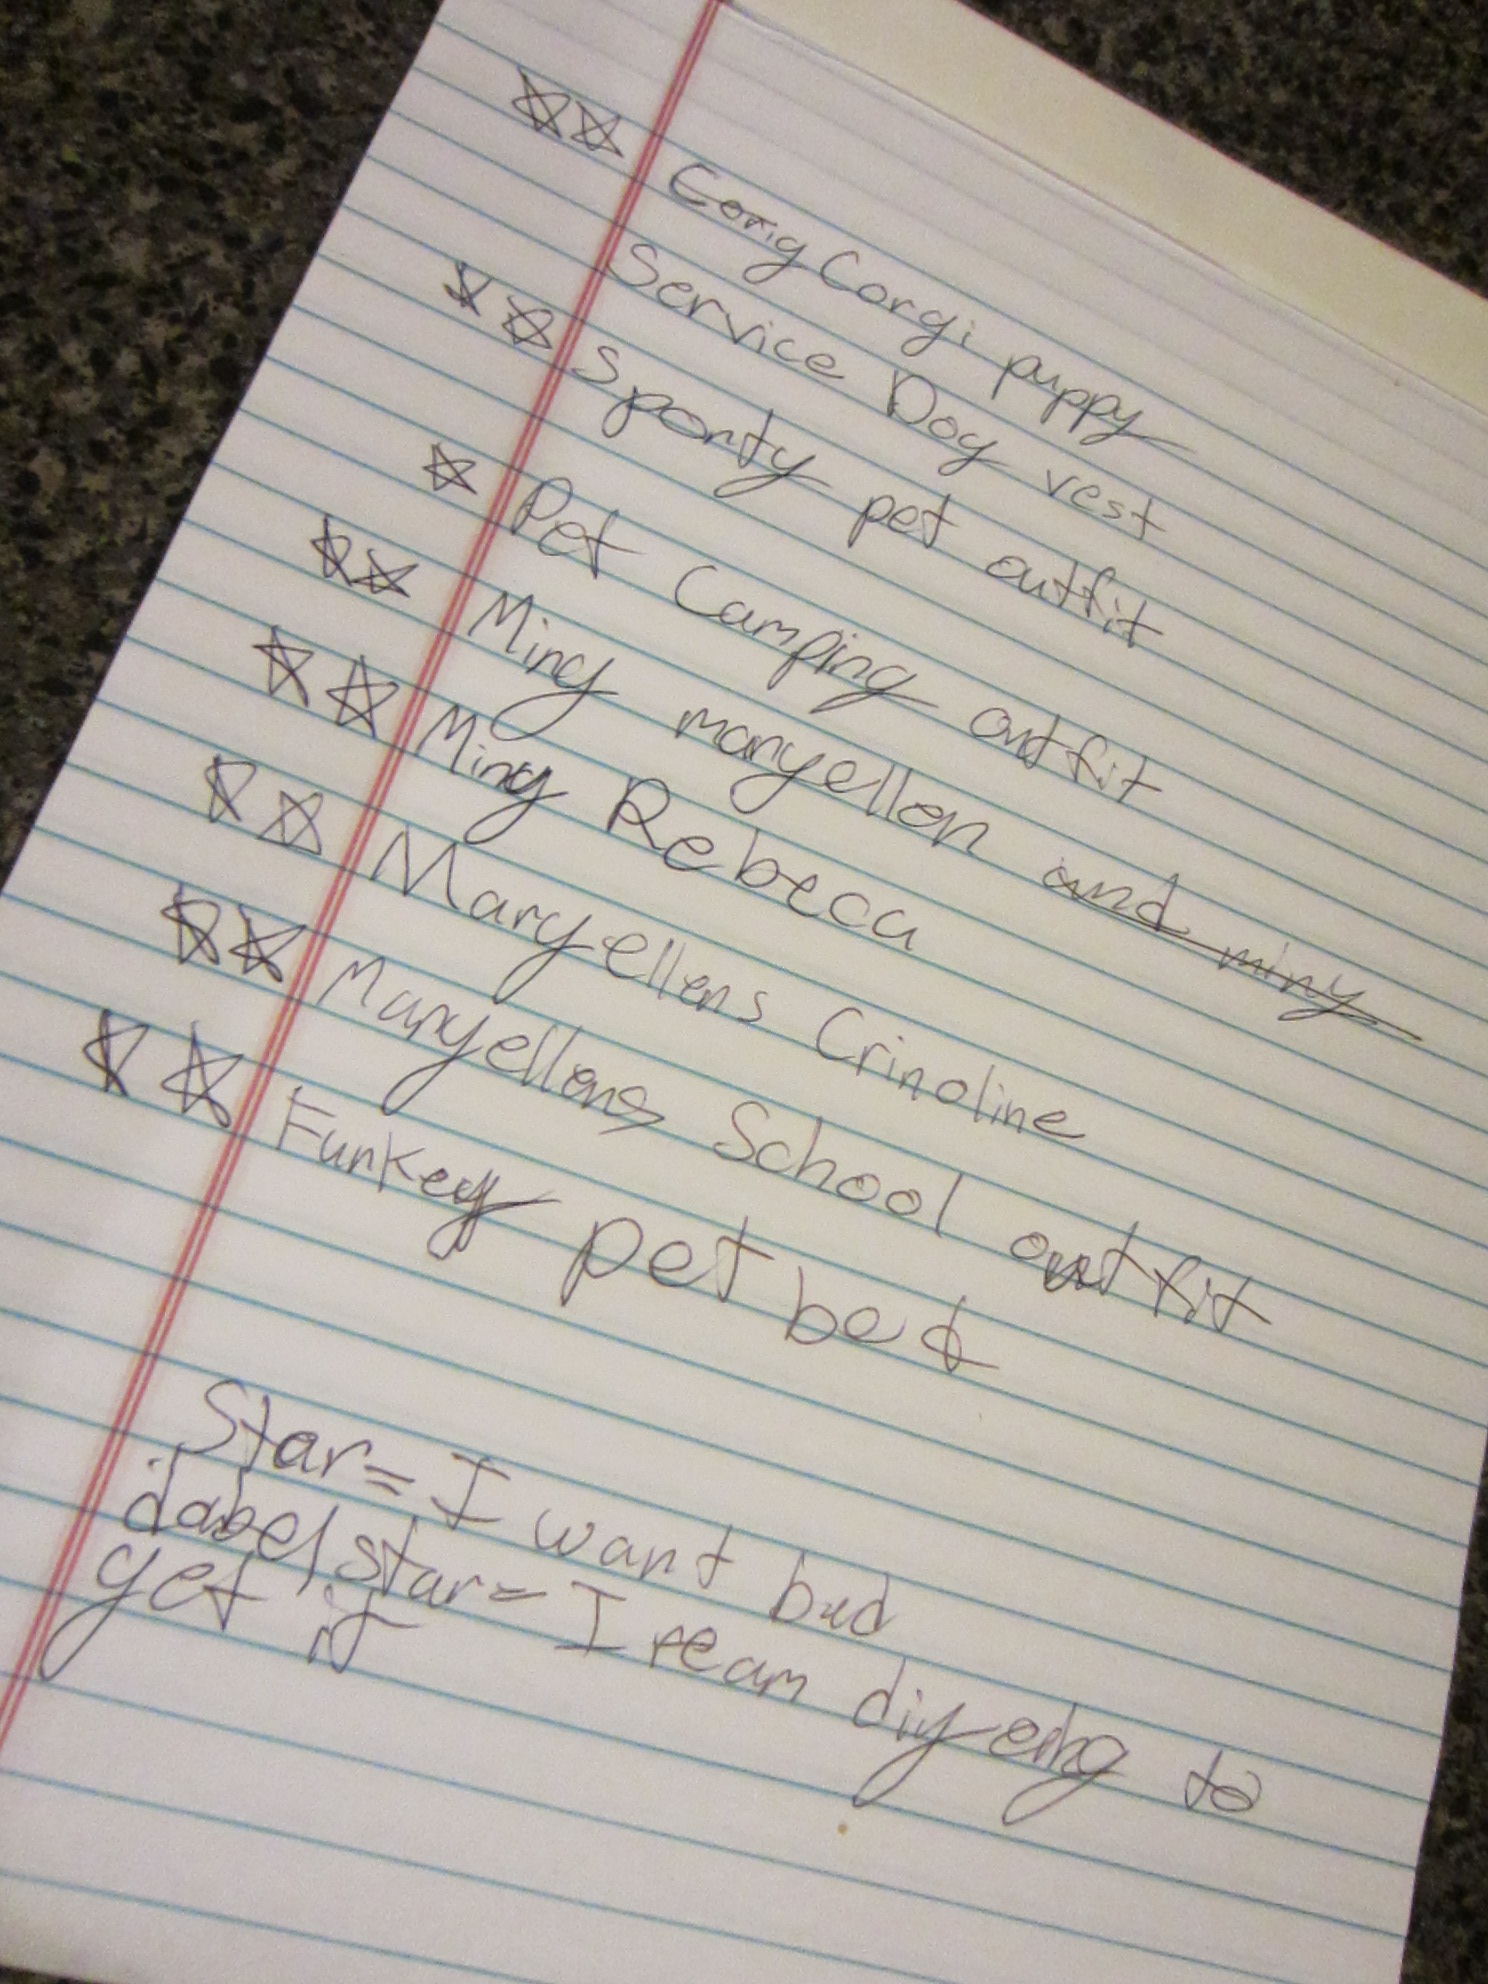 Corig Corgi puppy
Service Dog vest
Sporty pet outfit
Pet Camping outfit
Miny maryellen and miny
Miny Rebeca
Maryellens Crinoline
Maryellens School outfit
Funkey pet bed
Star = I want bad
dabel star = I ream diyeing to
get it